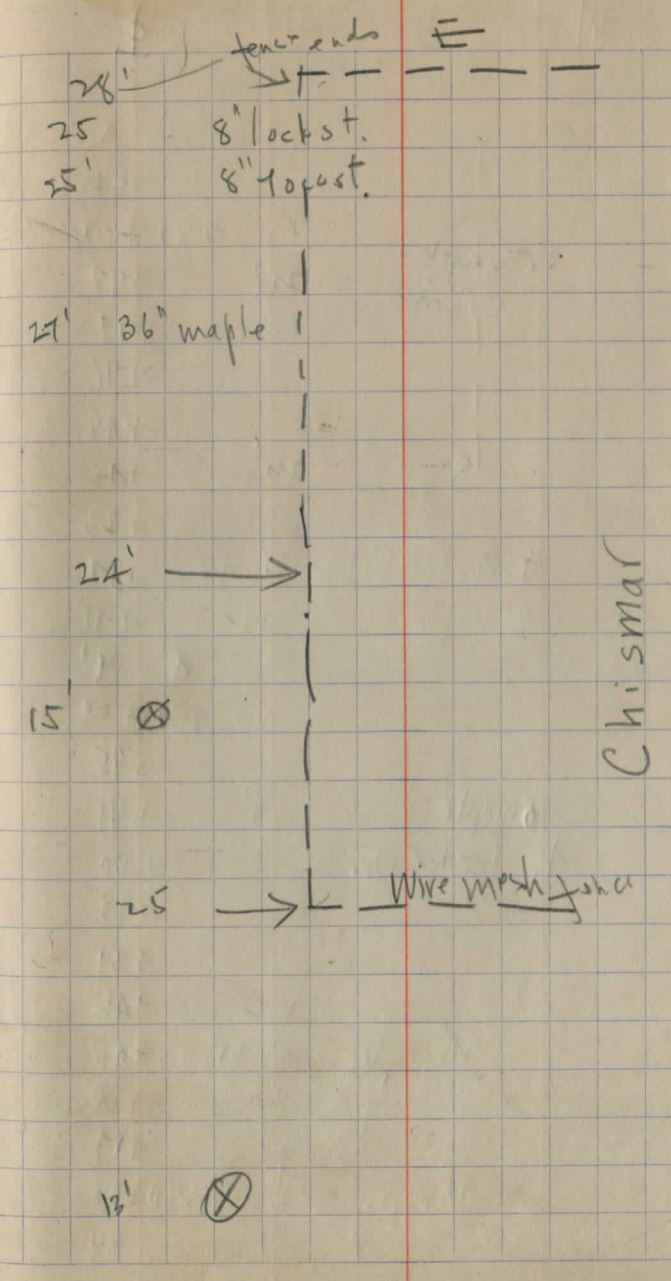 fence ends E
28'
25 8" locust.
25' 8" locust.
27' 36" maple
24'
Chismar
15'
Wire mesh fence
25
13'